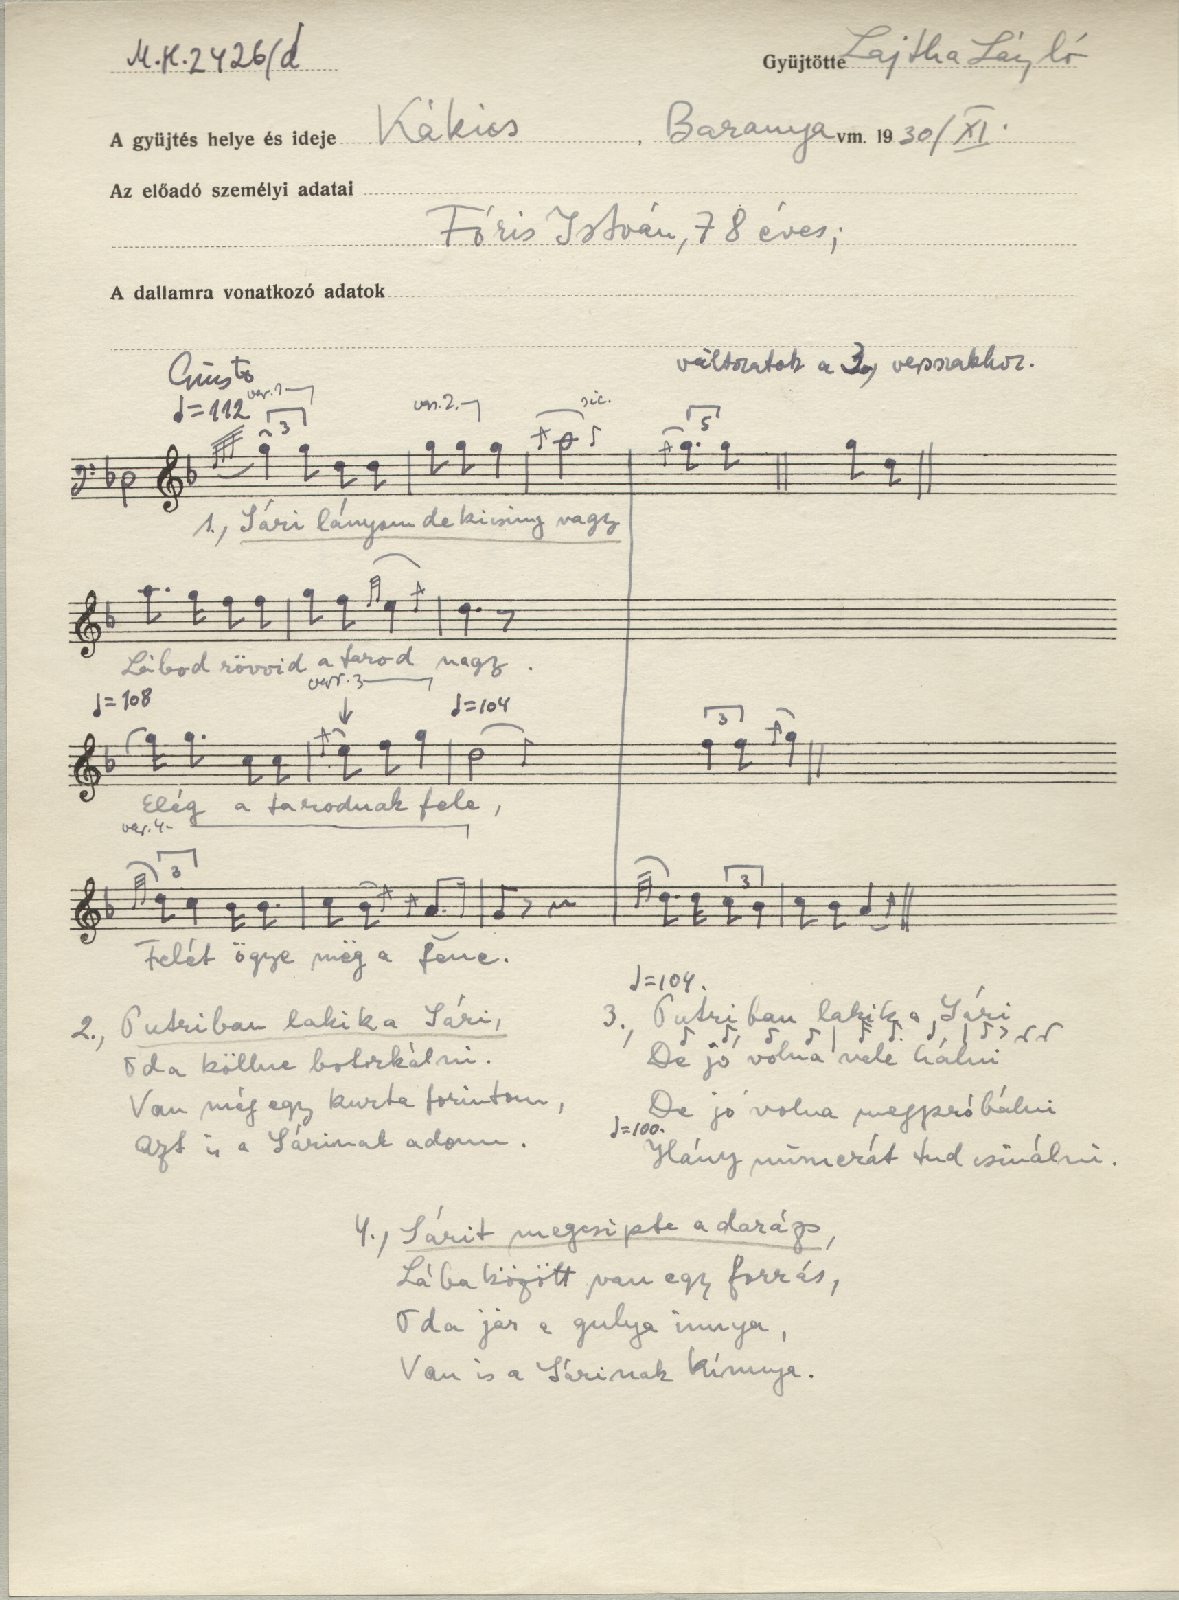 M.H.2426/d
Gyüjtötte Lajtha László
A gyüjtés helye és ideje Kákics, Baranya vm. 1930/XI.
Az előadó személyi adatai
Fóris István, 78 éves;
A dallamra vonatkozó adatok
Giusto
változatok a 3, versszakhoz.
♩=112 var.1
3
var.2.
sic.
5
1., Sári lányom de kicsiny vagy
Lábod rövvid a farod nagy.
♩=108
var.3
♩=104
3
Elég a farodnak fele,
var.4.
3
3
Felét ögye mög a fene.
2., Putriban lakik a Sári,
Oda köllne botorkálni.
Van még egy kurta forintom,
Azt is a Sárinak adom.
♩=104.
3., Putriban lakik a Sári
De jó volna vele hálni
De jó volna megpróbálni
♩=100.
Hány numerát tud csinálni.
4., Sárit megcsipte a darázs,
Lába között van egy forrás,
Oda jár a gulya innya,
Van is a Sárinak kínnya.